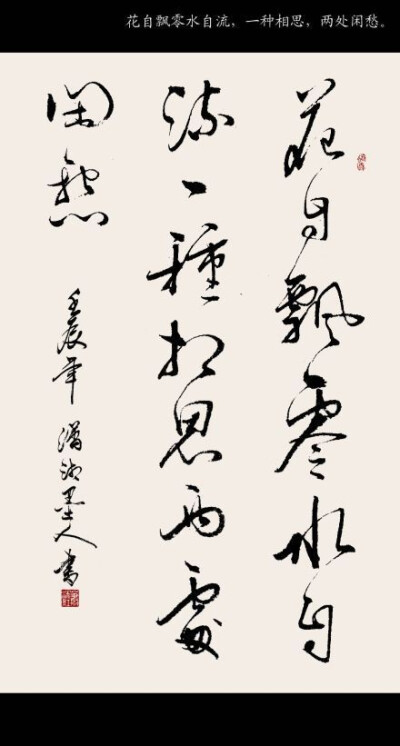 花自飘零水自流，一种相思，两处闲愁。
花自飄零水自
流一種相思两處
閑愁
壬辰年 瀟湘墨人書